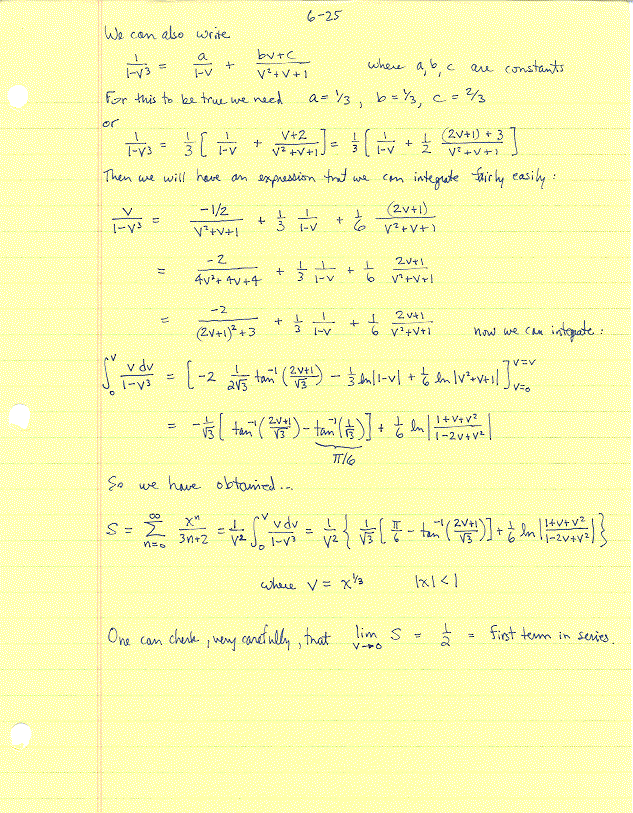 6-25
We can also write
1/(1-v³) = a/(1-v) + (bv+c)/(v²+v+1) where a, b, c are constants
For this to be true we need a = 1/3, b = 1/3, c = 2/3
or
1/(1-v³) = 1/3 [ 1/(1-v) + (v+2)/(v²+v+1) ] = 1/3 [ 1/(1-v) + 1/2 ((2v+1)+3)/(v²+v+1) ]
Then we will have an expression that we can integrate fairly easily:
v/(1-v³) = (-1/2)/(v²+v+1) + 1/3 1/(1-v) + 1/6 (2v+1)/(v²+v+1)
= -2/(4v²+4v+4) + 1/3 1/(1-v) + 1/6 (2v+1)/(v²+v+1)
= -2/((2v+1)²+3) + 1/3 1/(1-v) + 1/6 (2v+1)/(v²+v+1) now we can integrate:
∫₀^v v dv/(1-v³) = [ -2 1/(2√3) tan⁻¹((2v+1)/√3) - 1/3 ln|1-v| + 1/6 ln|v²+v+1| ] v=v v=0
= -1/√3 [ tan⁻¹((2v+1)/√3) - tan⁻¹(1/√3) ] + 1/6 ln| (1+v+v²)/(1-2v+v²) |
π/6
So we have obtained...
S = ∑_{n=0}^∞ xⁿ/(3n+2) = 1/v² ∫₀^v v dv/(1-v³) = 1/v² { 1/√3 [ π/6 - tan⁻¹((2v+1)/√3) ] + 1/6 ln| (1+v+v²)/(1-2v+v²) | }
where v = x^{1/3} |x| < 1
One can check, very carefully, that lim_{v→0} S = 1/2 = first term in series.